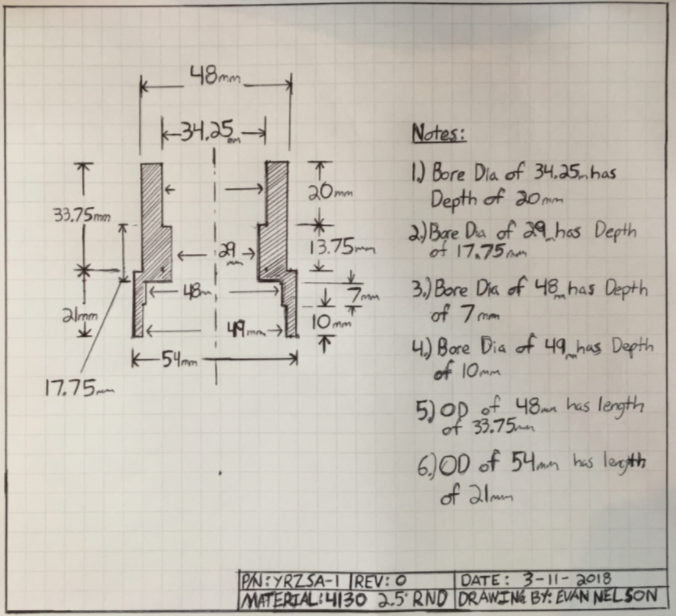 48mm
34.25mm
33.75mm
20mm
29mm
13.75mm
48mm
7mm
21mm
49mm
10mm
54mm
17.75mm
Notes:
1.) Bore Dia of 34.25m has
Depth of 20mm
2.) Bore Dia of 29m has Depth
of 17.75mm
3.) Bore Dia of 48m has Depth
of 7mm
4.) Bore Dia of 49m has Depth
of 10mm
5.) OD of 48mm has length
of 33.75mm
6.) OD of 54mm has length
of 21mm
P/N: YRZSA-1 REV: 0 DATE: 3-11-2018
MATERIAL: 4130 2.5" RND DRAWING BY: EVAN NELSON